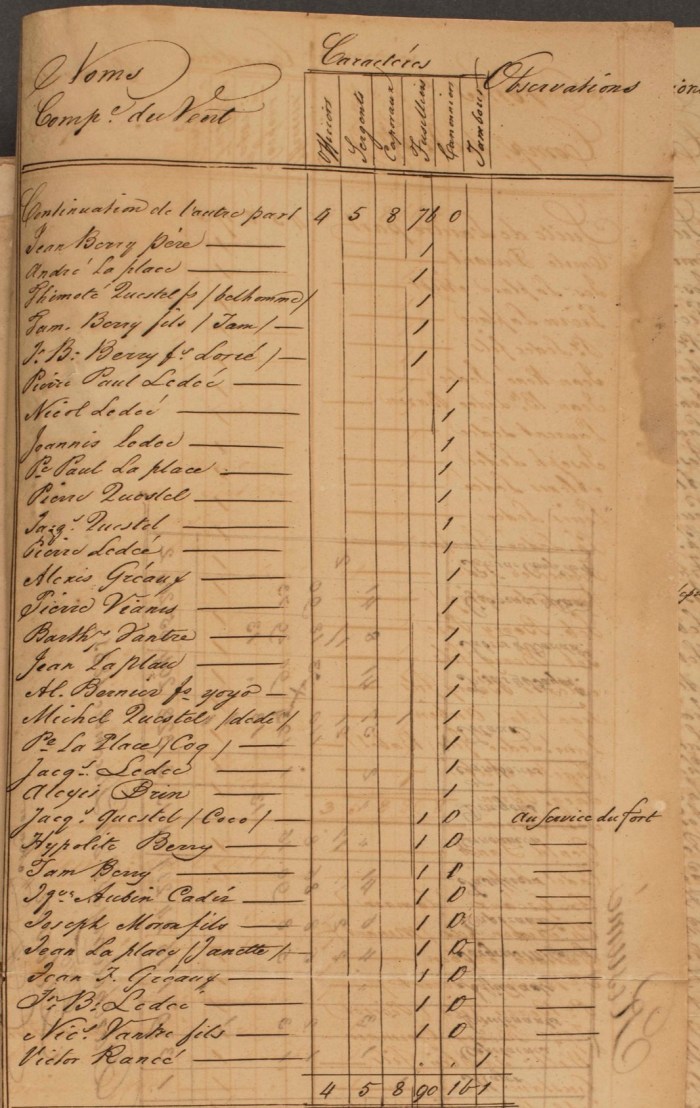 Noms
Comp.e du Vent
Caractéres
Officiers Sergents Caporaux Fusilliers Canonniers Tambour
Observations
Continuation de l'autre part 4 5 8 76 0
Jean Berry pére 1
André La place 1
Thimoté Questel fs / belhomme / 1
Jam. Berry fils / Jam / 1
Jn. Bte. Berry fs. Lorié / 1
Pierre Paul Ledeé 1
Nicol Ledeé 1
Joannis Ledeé 1
Pe. Paul La place 1
Pierre Questel 1
Jaqs. Questel 1
Pierre Ledeé 1
Alexis Gréaux 1
Pierre Vianis 1
Barthy. Vantre 1
Jean La place 1
Al. Bernier fs. yoyo 1
Michel Questel / dédé / 1
Pe. La Place / Coq / 1
Jacqs. Ledeé 1
Alexis Brin 1
Jacqs. Questel / Coco / 1 0 au service du fort
Hypolite Berry 1 0
Jam Berry 1 0
Aubin Cadis 1 0
Joseph Moron fils 1 0
Jean La place / Janette / 1 0
Jean F. Gréaux 1 0
Jn. Bte. Ledeé 1 0
Nics. Vantre fils 1 0
Victor Rancé 1
4 5 8 90 16 1